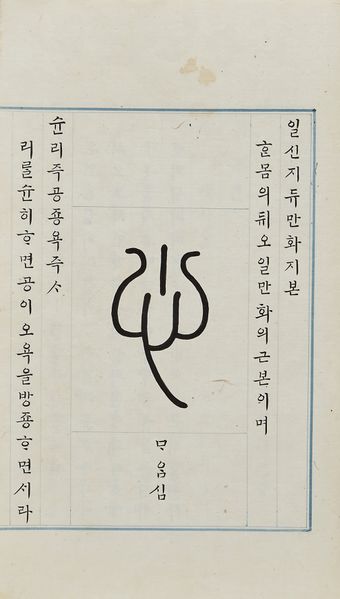 일신지듀만화지본
ᄒᆞᆫ몸의ᄃᆔ오일만화의근본이며
心
ᄆᆞᄋᆞᆷ심
슌리즉공죵욕즉ᄉᆞ
리ᄅᆞᆯ슌히ᄒᆞ면공이오욕을방죵ᄒᆞ면ᄉᆡ라